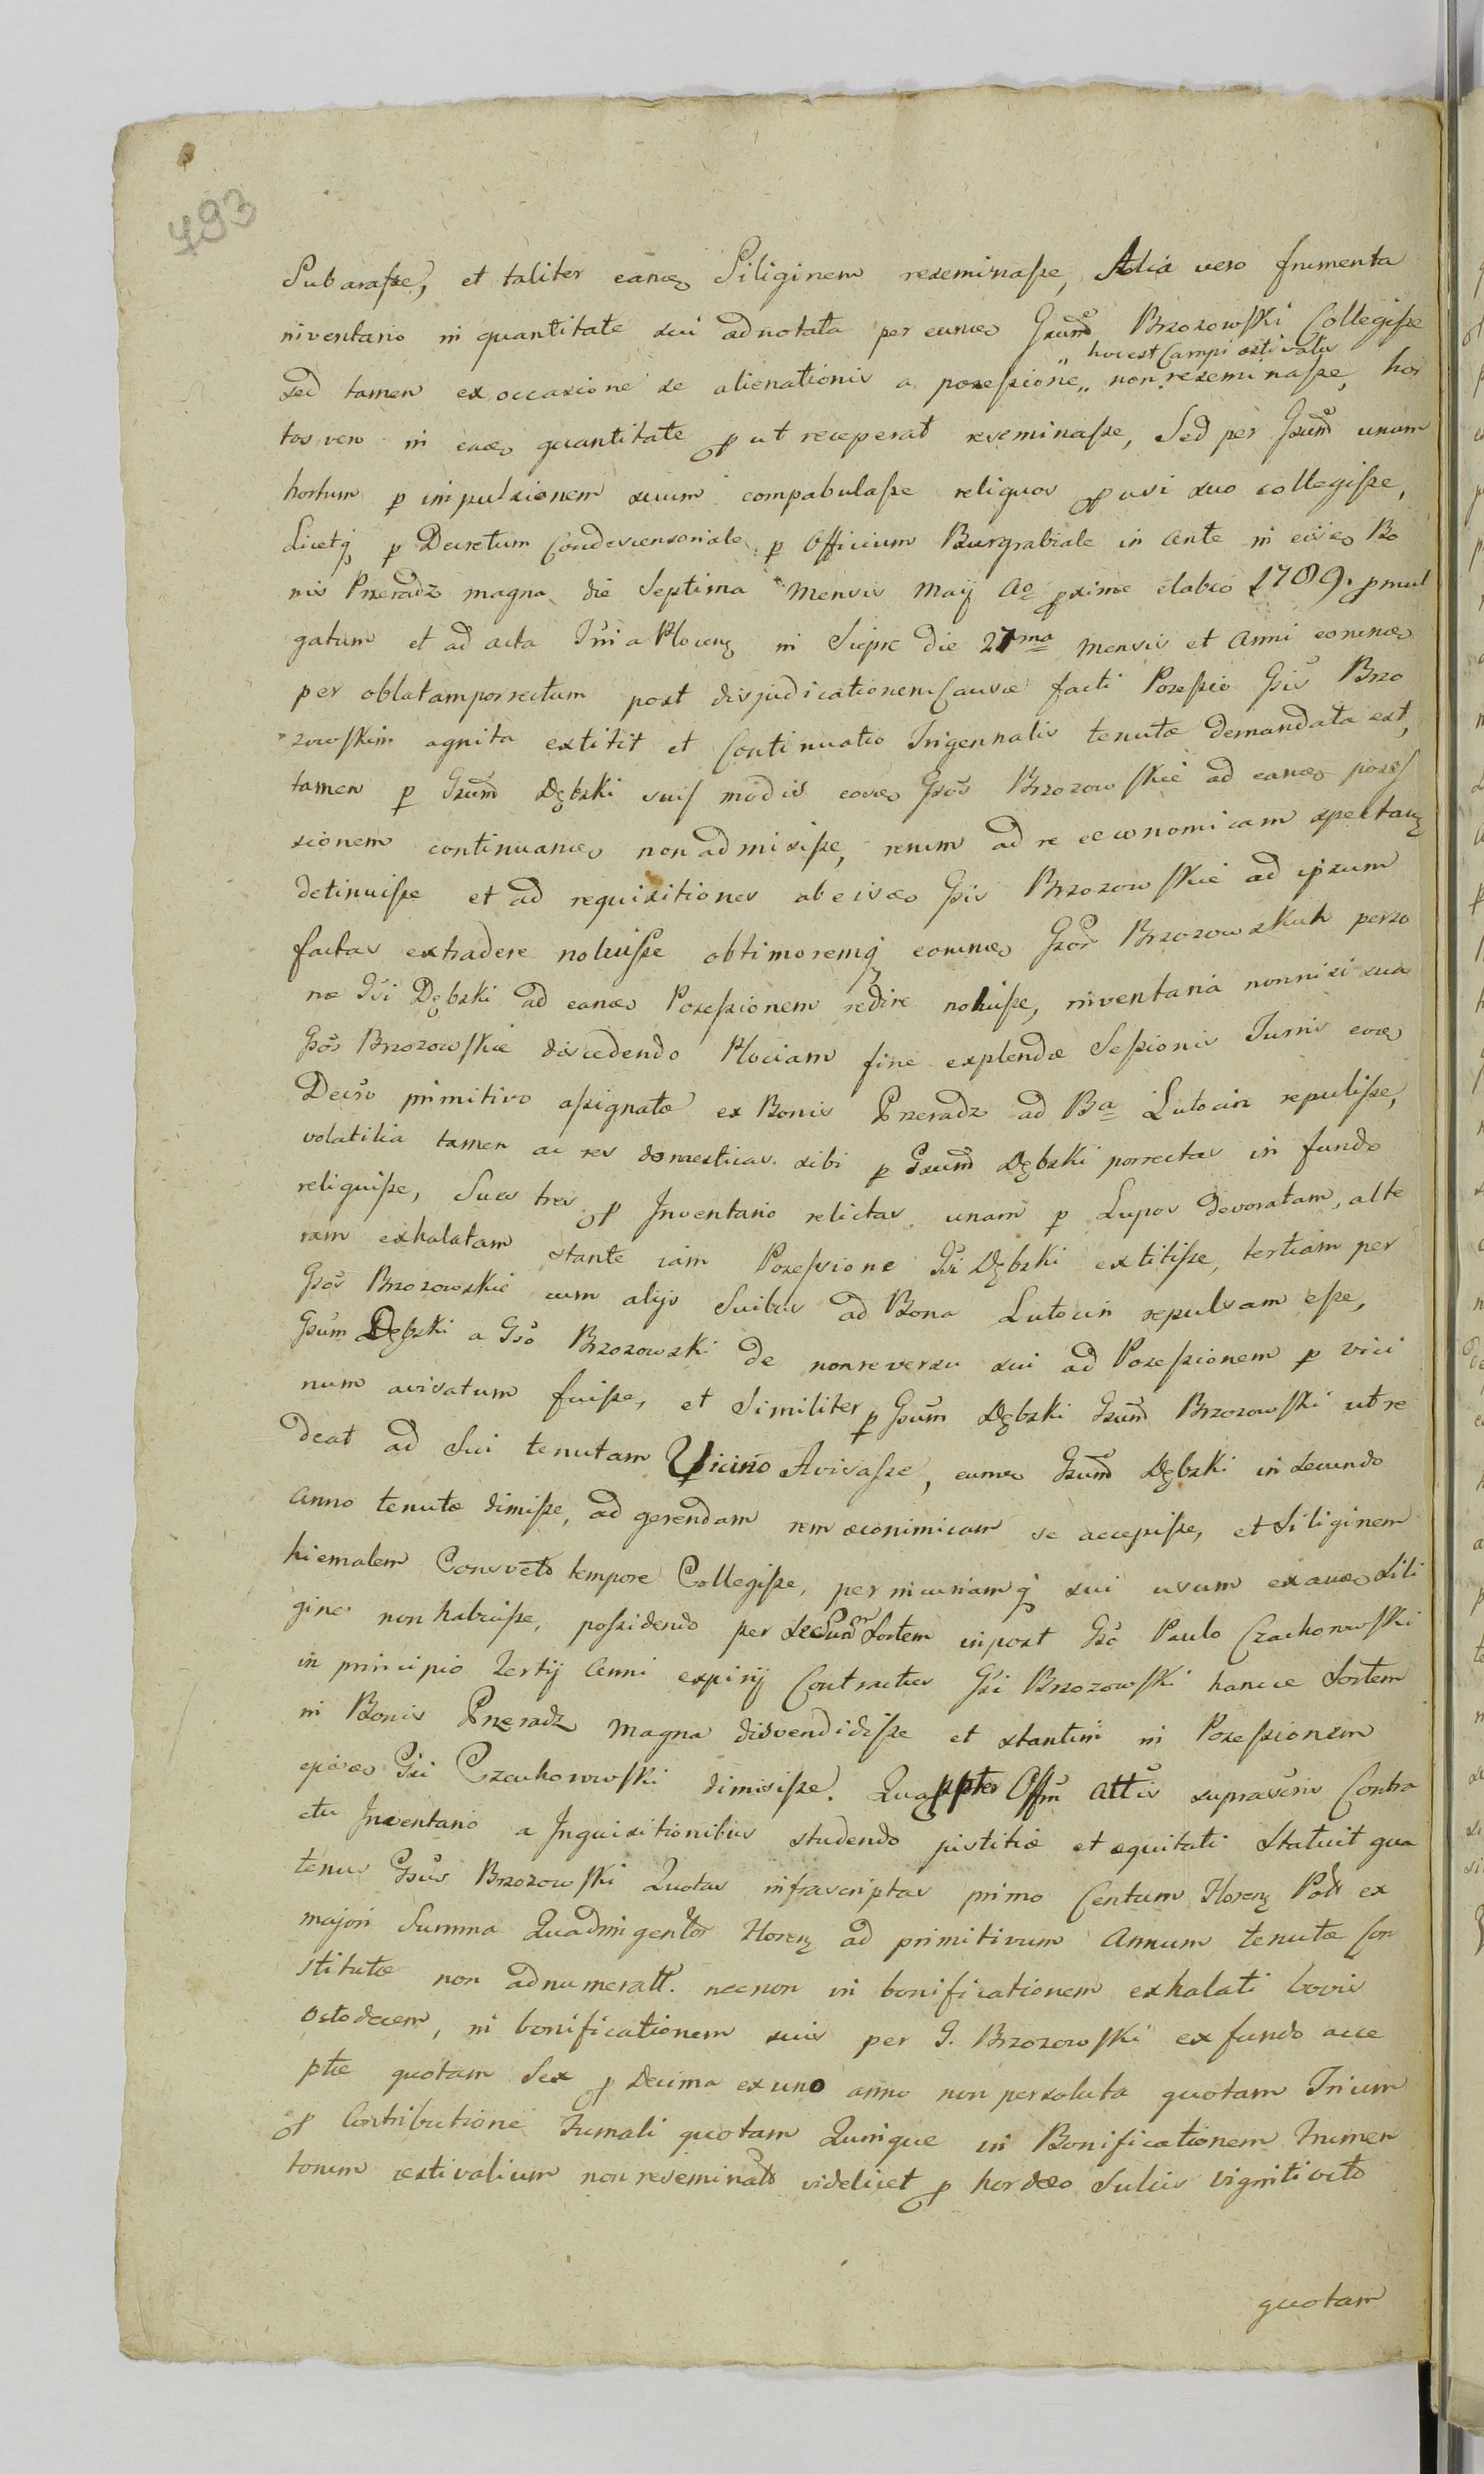 493
Subarasse, et taliter eand. Siliginem reseminasse, Alia vero frumenta
inventario in quantitate sui adnotata per eund. Gsum Brzozowski Collegisse
„ hoc est Campi aestivalis
sed tamen ex occasione se alienationis a possessione „ non reseminasse, hor
tos vero in ead. quantitate p ut receperat reseminasse, Sed per Gsum unum
hortum p impulsionem suum compabulasse reliquos p usi suo collegisse,
Licetq p Decretum Condescensoriale p Officium Burgrabiale in ante in eisd. Bo
nis Przeradz magna die Septima Mensis Maij Ao pxime elabso 1789. pmul
gatum et ad acta Plocen in Sieprc die 27ma Mensis et Anni eorund.
per oblatam porrectum post disjudicationem Causae facti Possessio Gsis Brzo
zowskim agnita extitit et Continuatio Trigennalis tenutae demandata est,
tamen p Gsum Dębski suis modis eosd. Gsos Brzozowskie ad eand. posses
sionem continuand. non admisisse, rerum ad re oeconomicam spectan
detinuisse et ad requisitiones ab eisd. Gsis Brzozowskie ad ipsum
factas extradere noluisse obtimoremq eorund. Gsor Brzozowskich perso
nae Gsi Dębski ad eand. Possessionem redire noluisse, inventaria nonnisi sua
Gsos Brzozowskie discedendo Plociam fine explendae Sessionis Turris eod.
Decso primitivo assignatae ex Bonis Przeradz ad Ba Lutocin repulisse,
volatilia tamen ac res domesticas sibi p Gsum Dębski porrectas in fundo
reliquisse, Sues tres p Inventario relictas unam p Lupos devoratam, alte
ram exhalatam stante iam Possessione Gsi Dębski extitisse, tertiam per
Gsos Brzozowskie cum alijs Suibus ad Bona Lutocin repulsam esse,
Gsum Dębski a Gso Brzozowski de nonreversu sui ad Possessionem p vici
num avisatum fuisse, et Similiter p Gsum Dębski Gsum Brzozowski ut re
deat ad Sui tenutam Vicino Avisasse, eund. Gsum Dębski in secundo
Anno tenutae dimisse, ad gerendam rem aeconimicam se accepisse, et Siliginem
hiemalem Consveto tempore Collegisse, per incuriamq sui usum ex ead. Sili
gine non habuisse, possidendo per Sortem inpost Gso Paulo Czachorowski
in principio Tertij Anni expirij Contractus Gsi Brzozowski hancce Sortem
in Bonis Przeradz Magna disvendidisse et statim in Possessionem
ejusd. Gsi Czachorowski dimisisse. Quappter Offm Attis suprascris Contra
ctu Inventario a Inquisitionibus studendo justitiae et aequitati Statuit qua
tenus Gsus Brzozowski Quotas infrascriptas primo Centum Floren Pols ex
majori Summa Quadringentor Floren ad primitivum Annum tenutae Con
stitutae non adnumeratt. necnon in bonificationem exhalati bovis
Octodecem, in bonificationem suis per G. Brzozowski ex fundo acce
ptae quotam Sex p Decima ex uno anno non persoluta quotam Trium
p Contributione Fumali quotam Quinque in Bonificationem Frumen
torum aestivalium non reseminato videlicet p hordeo Sulcis viginti octo
quotam